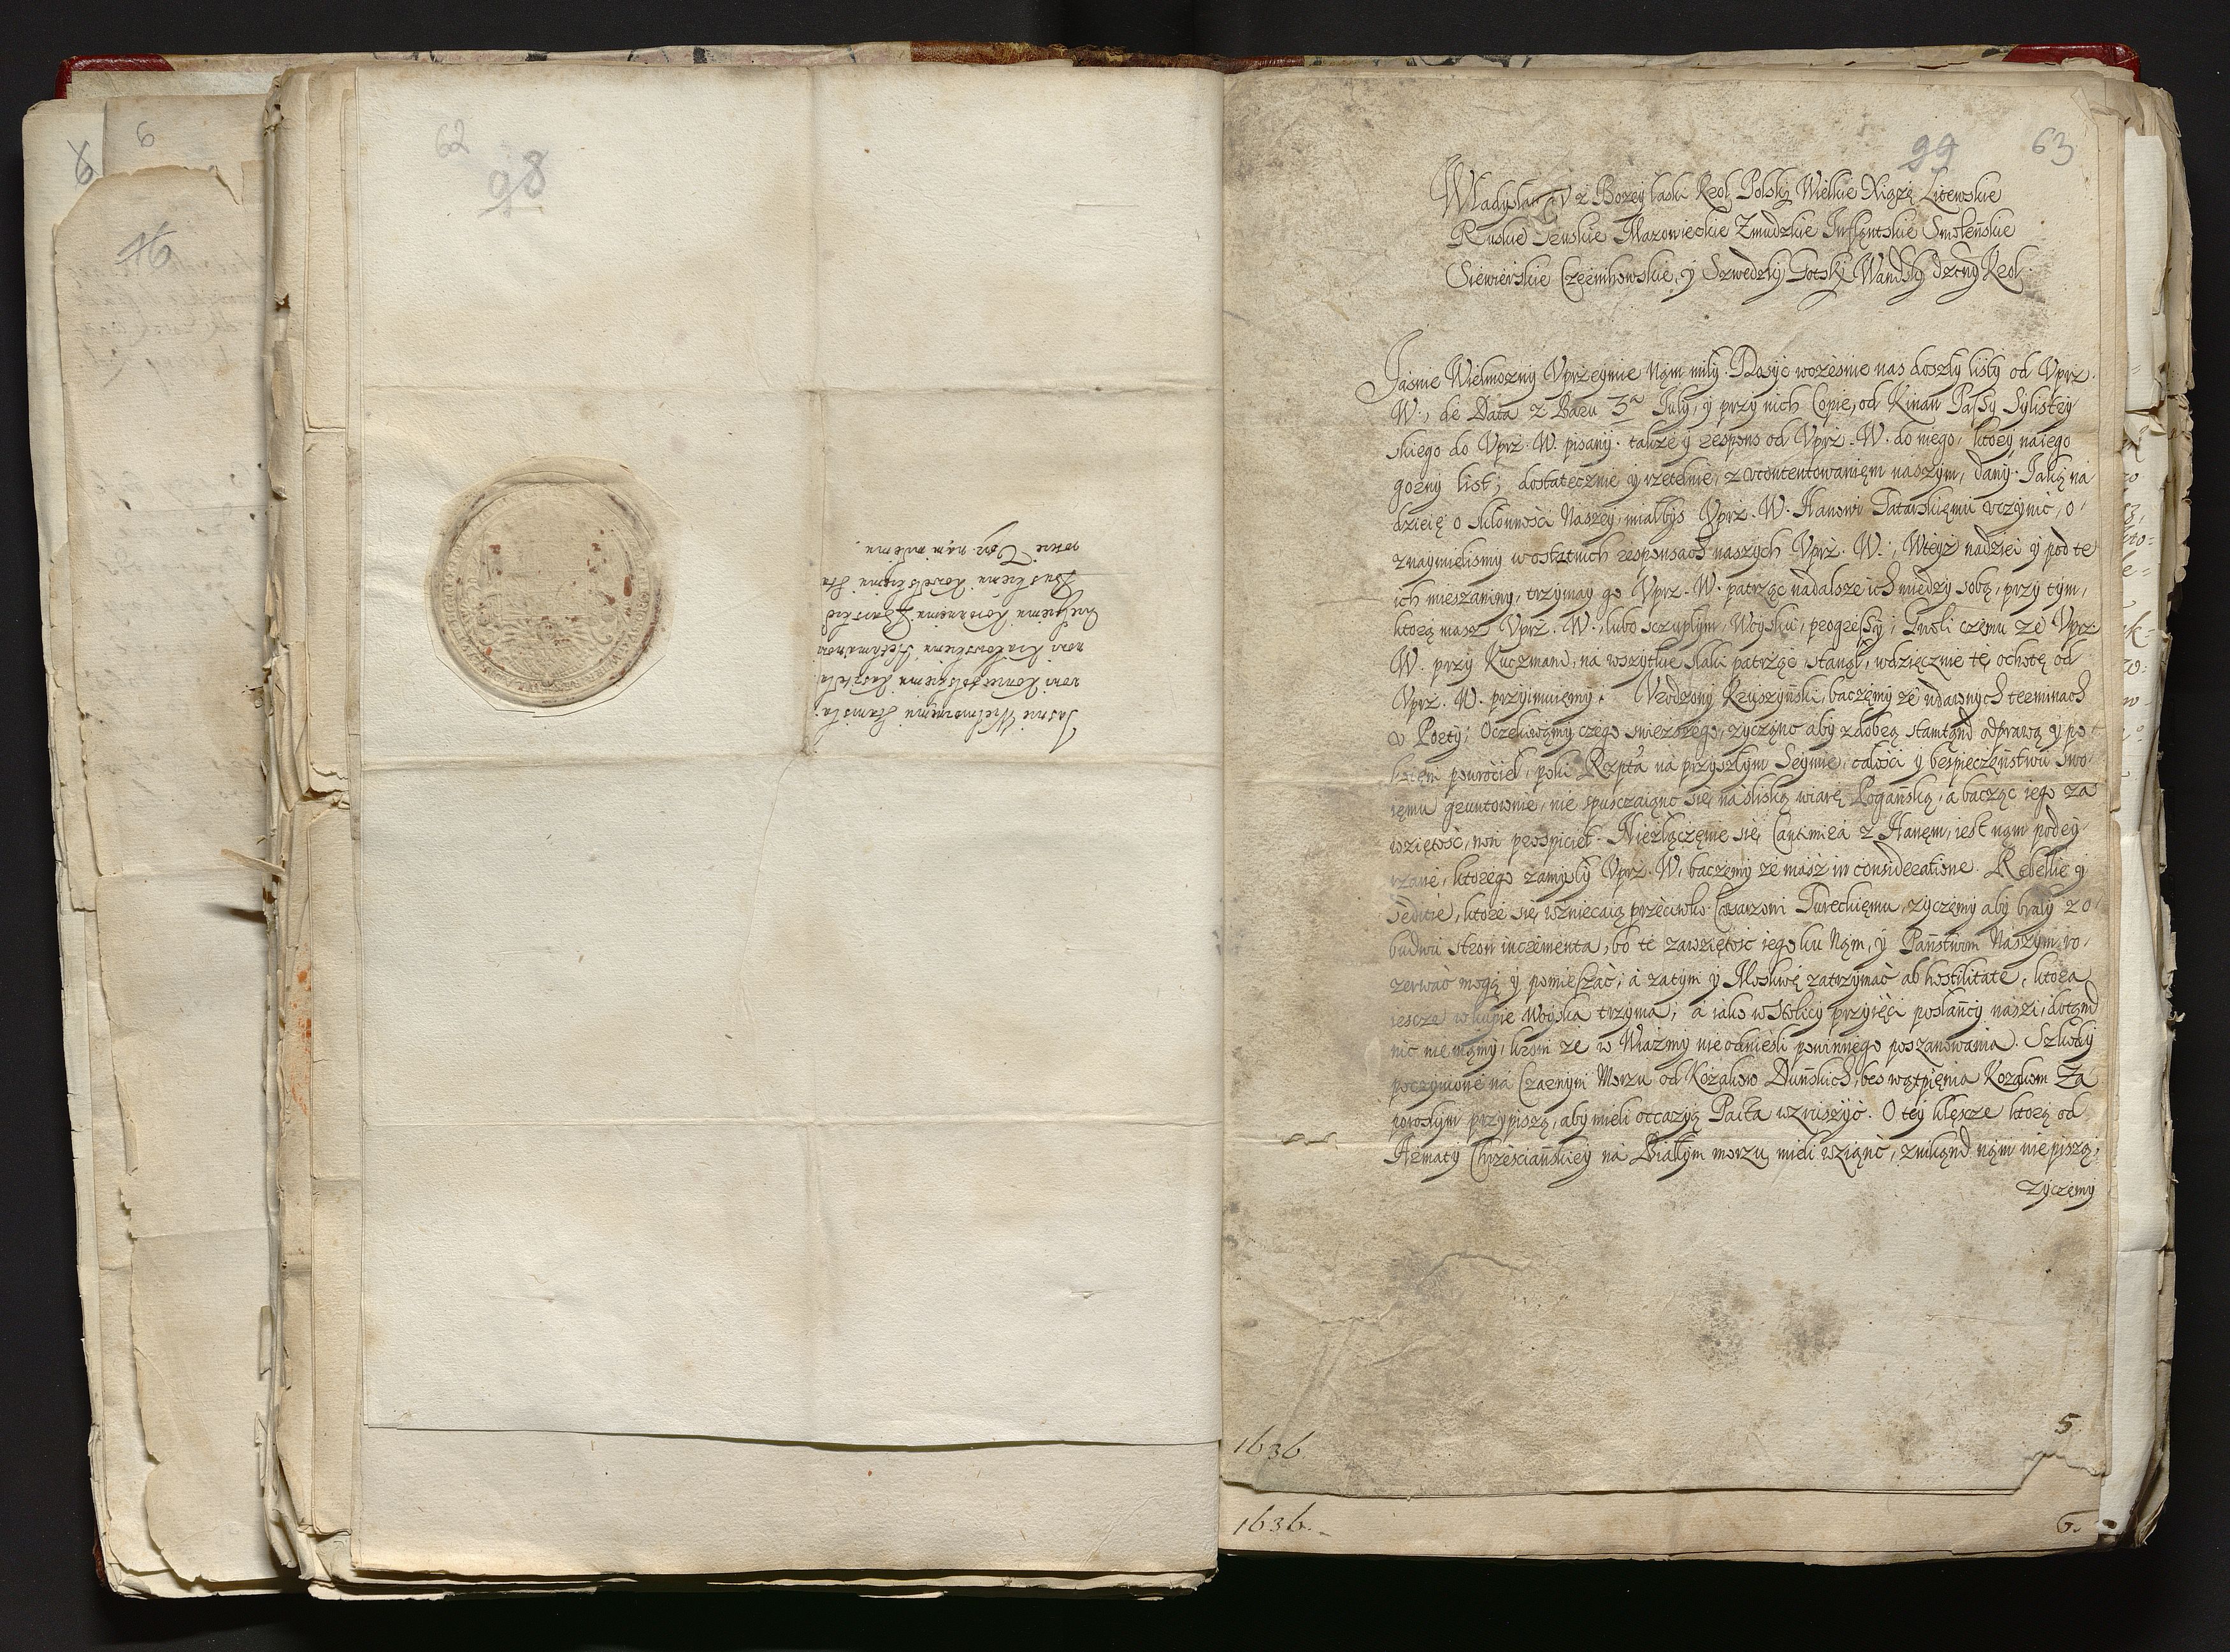 62
98
6
6
46
Jasnie Wielmoznemu Stanisła,
wowi Koniecpolskiemu Kasztela,
nowi Krakowskiemu Hetmanowi
Wielkiemu Koronnemu Barskie,
Kowelskiemu Sta
roscie Uprz. nam miłemu.
99
63
Władysław IV z Bozey łaski Krol Polsky Wielkie Xiąże Litewskie
Ruskie Pruskie Mazowieckie Zmudzkie Inflantskie Smolenskie
Siewierskie Czernihowskie, y Szwedzky Gotsky Wandsky dzczny Krol.
Jasnie Wielmozny Vprzeymie Nam miły. Dosyc wczesnie nas doszły listy od Vprz.
W., de Data z Baru 3ª July, y przy nich Copie, od Kinan Passy Sylistry
skiego do Vprz. W. pisany. takze y respons od Vprz. W. do niego, ktory na iego
gorny list, dostatecznie y rzetelnie, z vcontentowanięm naszym, dany. Jaką na
dzieię o skłonnosci Naszey, miałbys Vprz. W. Hanowi Tatarskięmu vczynić, o,
znaymielismy w ostatnich responsach naszych Vprz. W., Wteyż nadziei y pod te
ich mieszaniny, trzymay go Vprz. W. patrząc na dalsze ich miedzy sobą, przy tym,
ktorą masz Vprz. W., lubo sczupłym, Woysku, progressy; Gwoli czemu ze Vprz.
W. przy Kuczmani, na wszytkie slaki patrząc, stanął, wdzięcznie tę ochotę od
Vprz. W. przyimuięmy. Vrodzony Krzyszyński, baczemy ze w dawnych terminach
v Porty; Oczekiwamy czego swiezszego, zycząnc aby z dobrą stamtąnd odprawą y po,
koięm powrocieł, poki Rzpta na przyszłym Seymie, całosci y bespieczęnstwu swo,
ięmu gruntownie, nie spusczaiąnc się, na sliską wiarę Poganską, a bacząc iego za
wziętość, non prospiciet. Niezłączęnie się Cantimira z Hanęm, iest nam podey,
rzane, ktorego zamysły Vprz. W. baczemy ze masz in consideratione. Rebellie y
seditie, ktore się wzniecaią przeciwko Cesarzowi Tureckięmu, zyczęmy aby brały z o,
budwu stron incrementa, bo te zawziętość iego ku Nąm, y Państwom Naszym ro,
zerwać mogą y pomieszać; a zatym y Moskwę zatrzymać ab hostilitate, ktora
iescze w kupie Woyska trzyma; a iako w Stolicy przyięci posłańcy naszi, dotąnd
nic nie mamy, krom ze w Wiazmy nie odnieśli powinnego poszanowania. Szkody
poczynione na Czarnym Morzu od Kozakow Duńskich, bes wątpięnia Kozakom Za
poroskym przypiszą, aby mieli occazyą Pacta wzruszyć. O tey klęsce ktorą od
Armaty Chrzesciańskiey na Białym morzu mieli wziąnć, znikąnd nąm nie piszą,
zyczęmy
1636.
5
1636.
6.